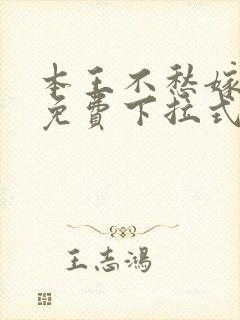 本王不愁嫁
免费下拉式
王志鴻